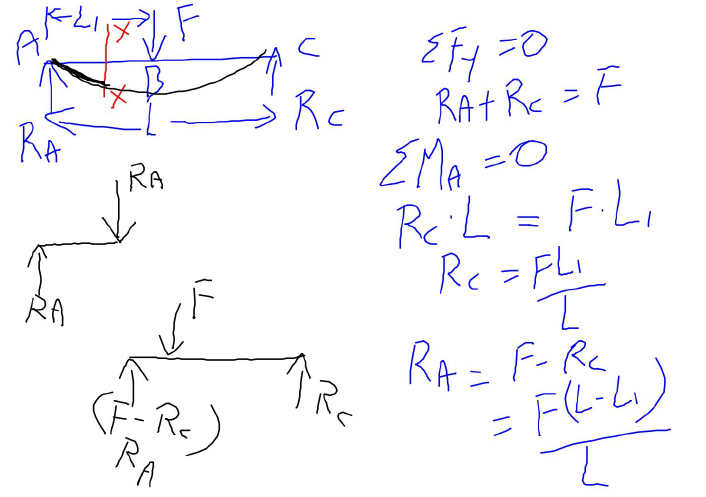 L1 X F
A C
B
X
RA L RC
RA
RA
F
(F - Rc)
RA
Rc
ΣFy = 0
RA + Rc = F
ΣMA = 0
Rc · L = F · L1
Rc = FL1
L
RA = F - Rc
= F(L - L1)
L